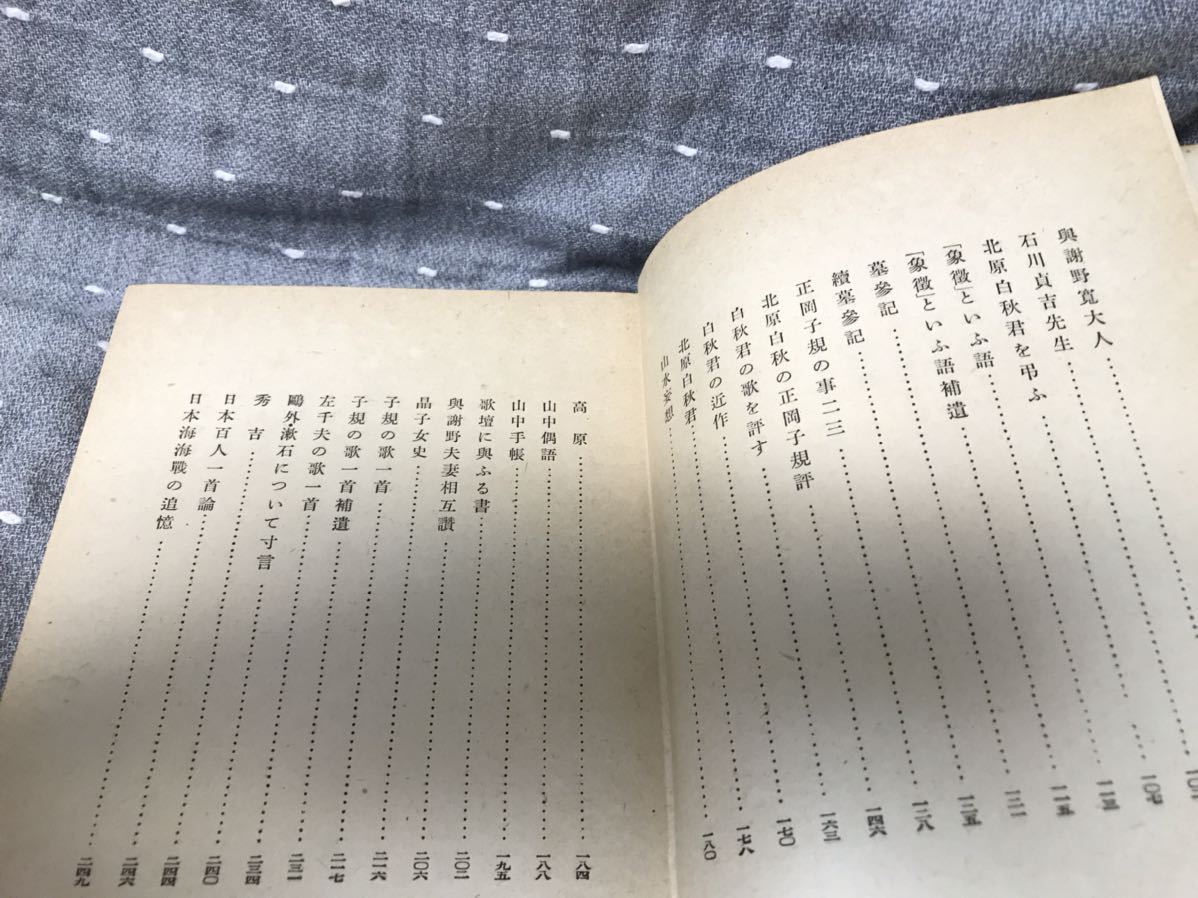 與謝野寛大人
石川貞吉先生……一〇七
北原白秋君を弔ふ……一一三
「象徴」といふ語……一一五
「象徴」といふ語補遺……一二一
墓參記……一二五
續墓參記……一二八
正岡子規の事二三……一四六
北原白秋の正岡子規評……一六三
白秋君の歌を評す……一七〇
白秋君の近作……一七八
北原白秋君……一八〇
山水妄想
高原……一八四
山中偶語……一八八
山中手帳……一九五
歌壇に與ふる書……二〇一
與謝野夫妻相互讃……二〇六
晶子女史……二一六
子規の歌一首……二一七
子規の歌一首補遺……二三一
左千夫の歌一首……二三四
鷗外・漱石について寸言……二四〇
秀吉……二四四
日本百人一首論……二四六
日本海海戰の追憶……二四九